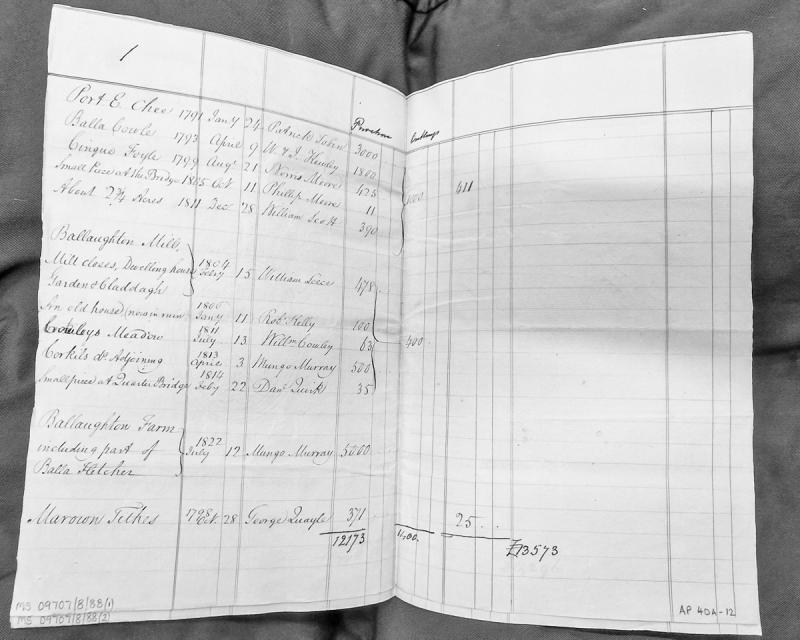 1
Purchase Buildings
Port E Chee 1791 Jany 24 Patrick John 3000
Balla Cowle 1793 April 9 W & J. 1800
Cinque Foyle 1799 Augt 21 Norris Moore 425 1000 611
Small Piece at the Bridge 1805 Oct 11 Phillip Moore 11
About 2¾ Acres 1811 Dec 28 William Scott 390
Ballaughton Mill,
Mill closes, Dwelling house 1804 Feby 15 William Leece 478
Garden & Claddagh
An old house (now in ruin 1806 Jany 11 Robt Kelly 100
Cowleys Meadow 1811 July 13 Willm Cowley 63 400
Corkils do Adjoining 1813 April 3 Mungo Murray 500
Small piece at Quarter Bridge 1814 Feby 22 Danl Quirk 35
Ballaughton Farm
including part of 1822 July 12 Mungo Murray 5000
Balla Fletcher
Marown Tithes 1798 Oct. 28 George Quayle 371 25
12173 1,400. £13573
MS 09707/8/88(1)
MS 09707/8/88(2)
AP 40A-12